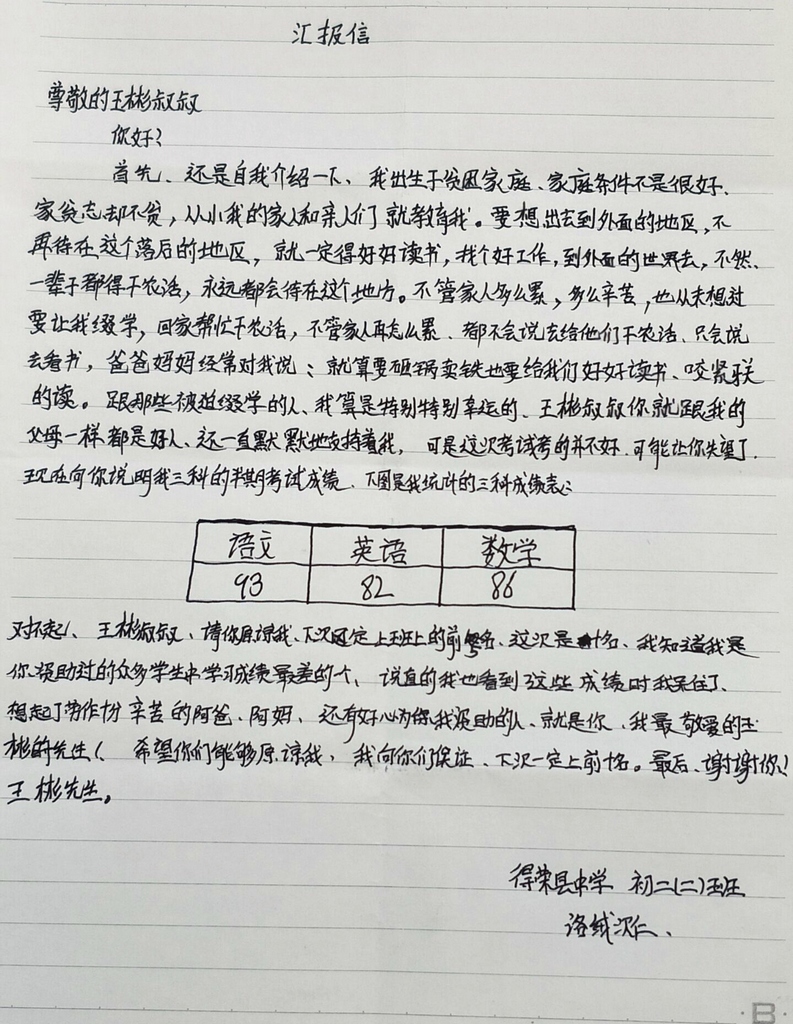 汇报信
尊敬的王彬叔叔
你好？
首先、还是自我介绍一下、我出生于贫困家庭、家庭条件不是很好、
家贫志却不贫，从小我的家人和亲人们就教育我。要想出去到外面的地区，不
再待在这个落后的地区，就一定得好好读书，找个好工作，到外面的世界去，不然、
一辈子都得干农活，永远都会待在这个地方。不管家人多么累，多么辛苦，也从未想过
要让我缀学，回家帮忙干农活，不管家人再怎么累、都不会说去给他们干农活、只会说
去看书，爸爸妈妈经常对我说：就算要砸锅卖铁也要给我们好好读书、咬紧牙关
的读。跟那些被迫缀学的人、我算是特别特别幸运的、王彬叔叔你就跟我的
父母一样都是好人、还一直默默地支持着我，可是这次考试考的并不好、可能让你失望了、
现在向你说明我三科的半期考试成绩、下图是我统计的三科成绩表：
语文 英语 数学
93 82 86
对不起！、王彬叔叔、请你原谅我、下次一定上班上的前名、这次是十名、我知道我是
你资助过的众多学生中学习成绩最差的个、说真的我也看到这些成绩时我呆住了、
想起了劳作份辛苦的阿爸、阿妈、还有好心为我资助的人、就是你、我最敬爱的王
彬的先生！、希望你们能够原谅我、我向你们保证、下次一定上前十名。最后、谢谢你！
王彬先生。
得荣县中学 初二(二)班
洛绒次仁、
B